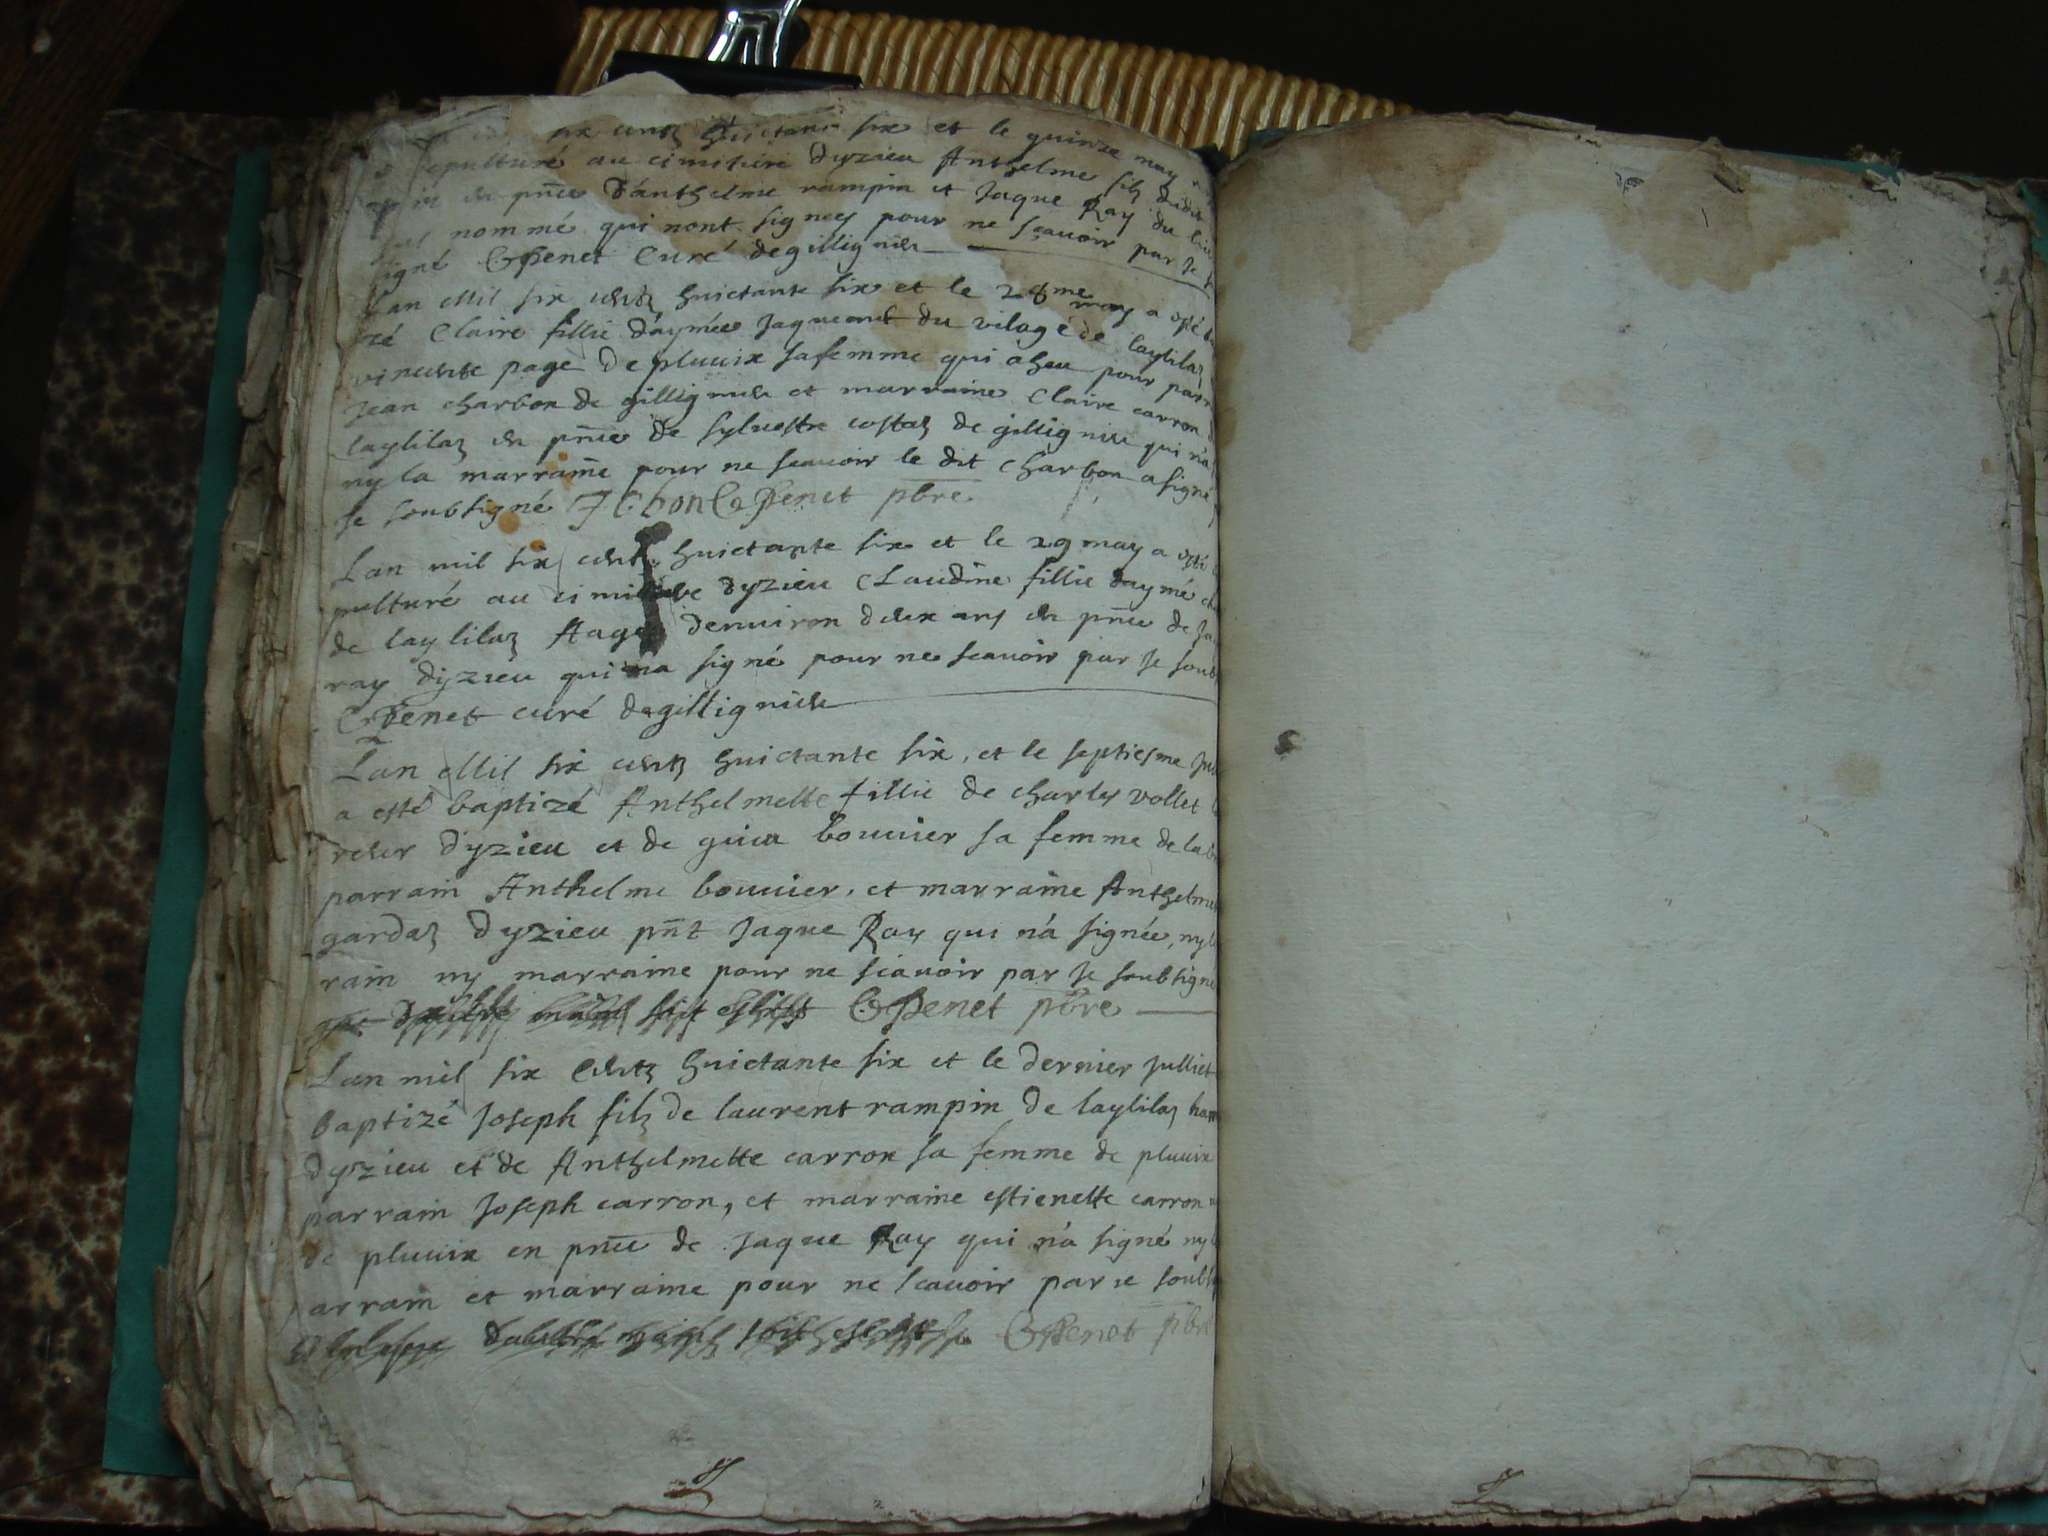 six cents huictante six et le quinze may
sepulturé au cimitiere dyzieu Anthelme filz dudit
en pnce d'anthelme rampin et Jaque Ray du lieu
nommé qui nont signes pour ne scauoir par Je
signé Penet Curé de gillignieu
Lan Mil six cents huictante six et le 28me may a esté
zé Claire fillie d'aymée Jaquemet du vilage de laylilaz
vincente page de pluuix sa femme qui a heu pour parr
Jean charbon de gillignieu et marraine Claire carron
laylilaz en pnce de syluestre costaz de gillignieu qui n'a
ny la marraine pour ne scauoir le dit charbon a signé
Je soubsigné J C.bon Penet pbre
Lan mil six cents huictante six et le 29 may a esté
pulturé au cimitiere dyzieu Claudine fillie daymé
de laylilaz Aagee denuiron deux ans en pnce de Ja
ray dyzieu qui n'a signé pour ne scauoir par Je soub
Penet curé de gillignieu
Lan Mil six cents huictante six, et le septiesme Ju
a esté baptizé Anthelmette fillie de charles vollet
reur dyzieu et de guica bouuier sa femme de la
parrain Anthelme bouuier, et marraine Anthelme
gardaz dyzieu pnt Jaque Ray qui n'a signée, ny
rain ny marraine pour ne scauoir par Je soubsigne
Penet pbre
Lan mil six Cents huictante six et le dernier Julliet
baptizé Joseph filz de laurent rampin de laylilaz ham
dyszieu et de Anthelmette carron sa femme de pluuix
parrain Joseph carron, et marraine estienette carron
de pluuix en pnce de Jaque Ray qui n'a signé ny
arrain et marraine pour ne scauoir par Je soubs
dautre main soit escrite Penet pbre